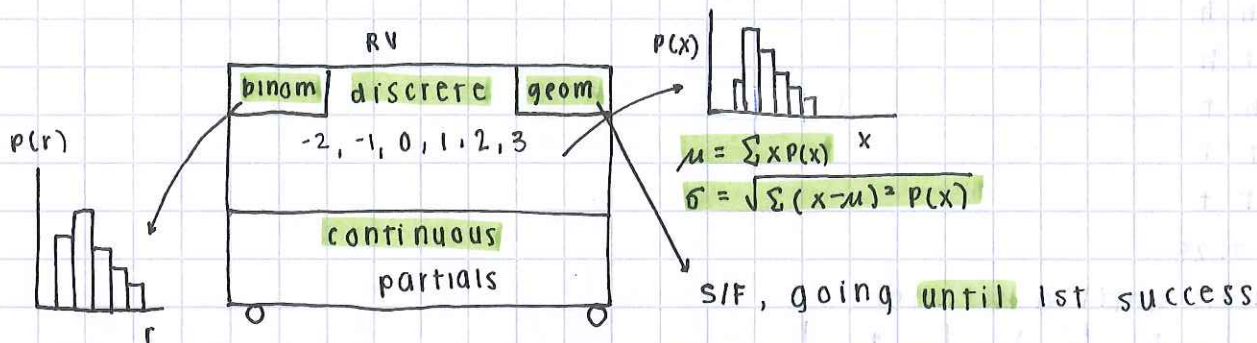 RV
binom discrete geom
-2, -1, 0, 1, 2, 3
continuous
partials
P(r)
r
P(X)
x
μ = Σ x P(x)
σ = √Σ(x-μ)² P(x)
S/F, going until 1st success